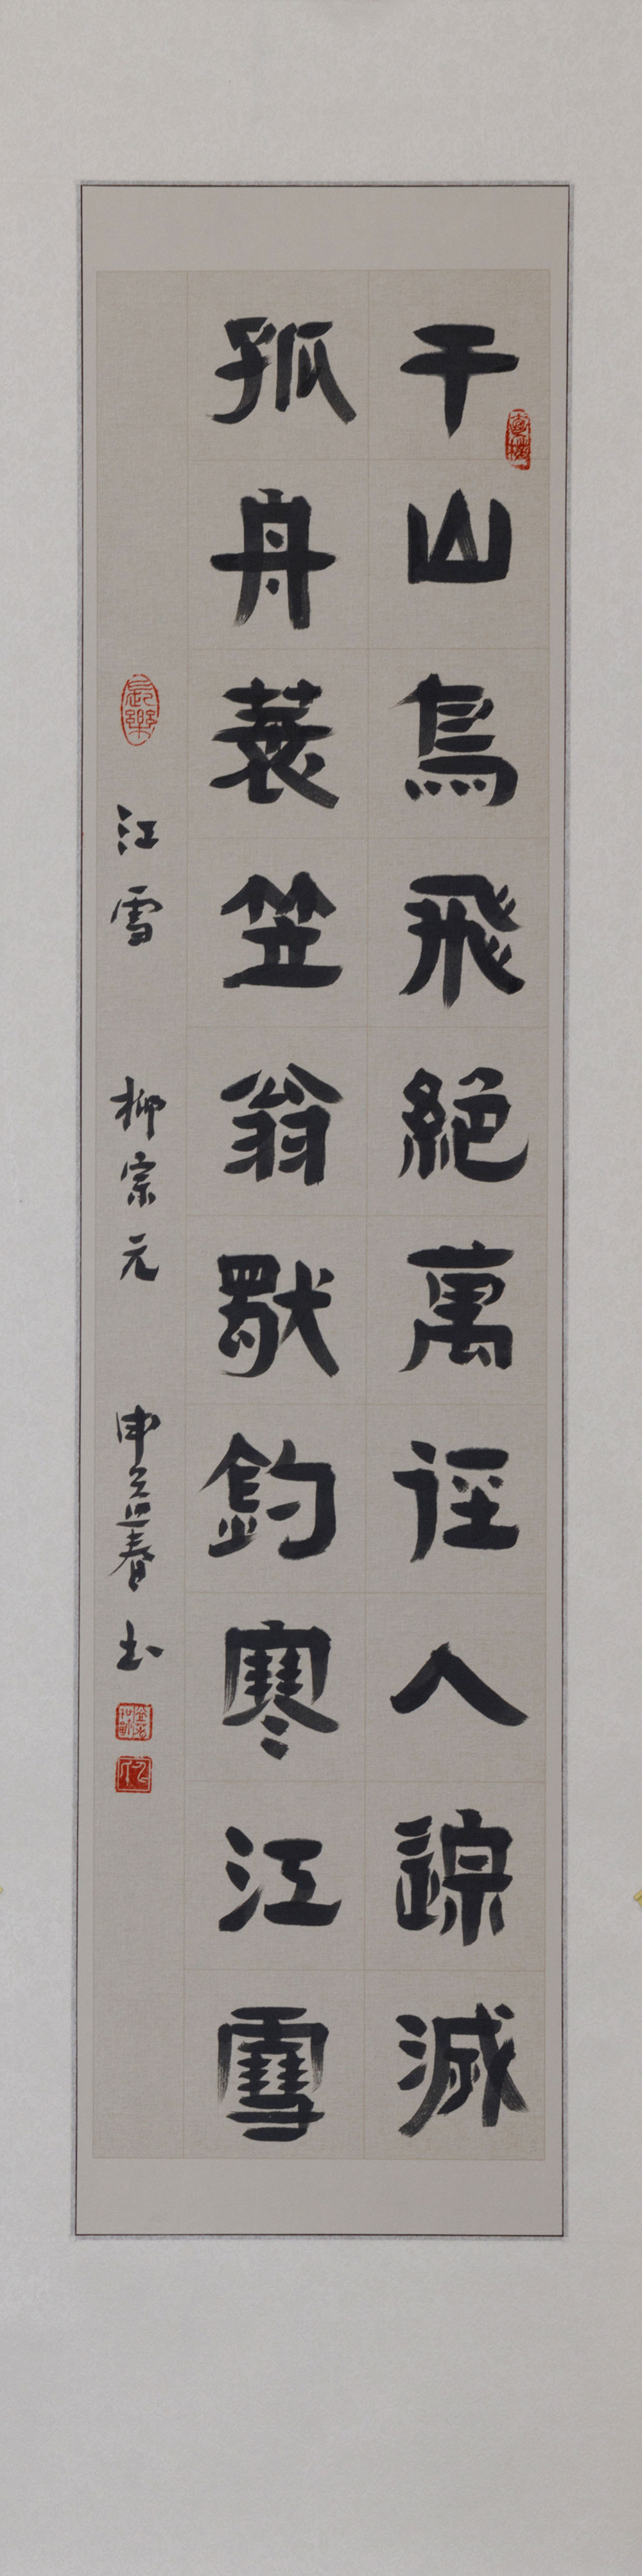 千山鳥飛絕萬徑人蹤滅
孤舟蓑笠翁獨釣寒江雪
長樂
江雪 柳宗元
迎春 書